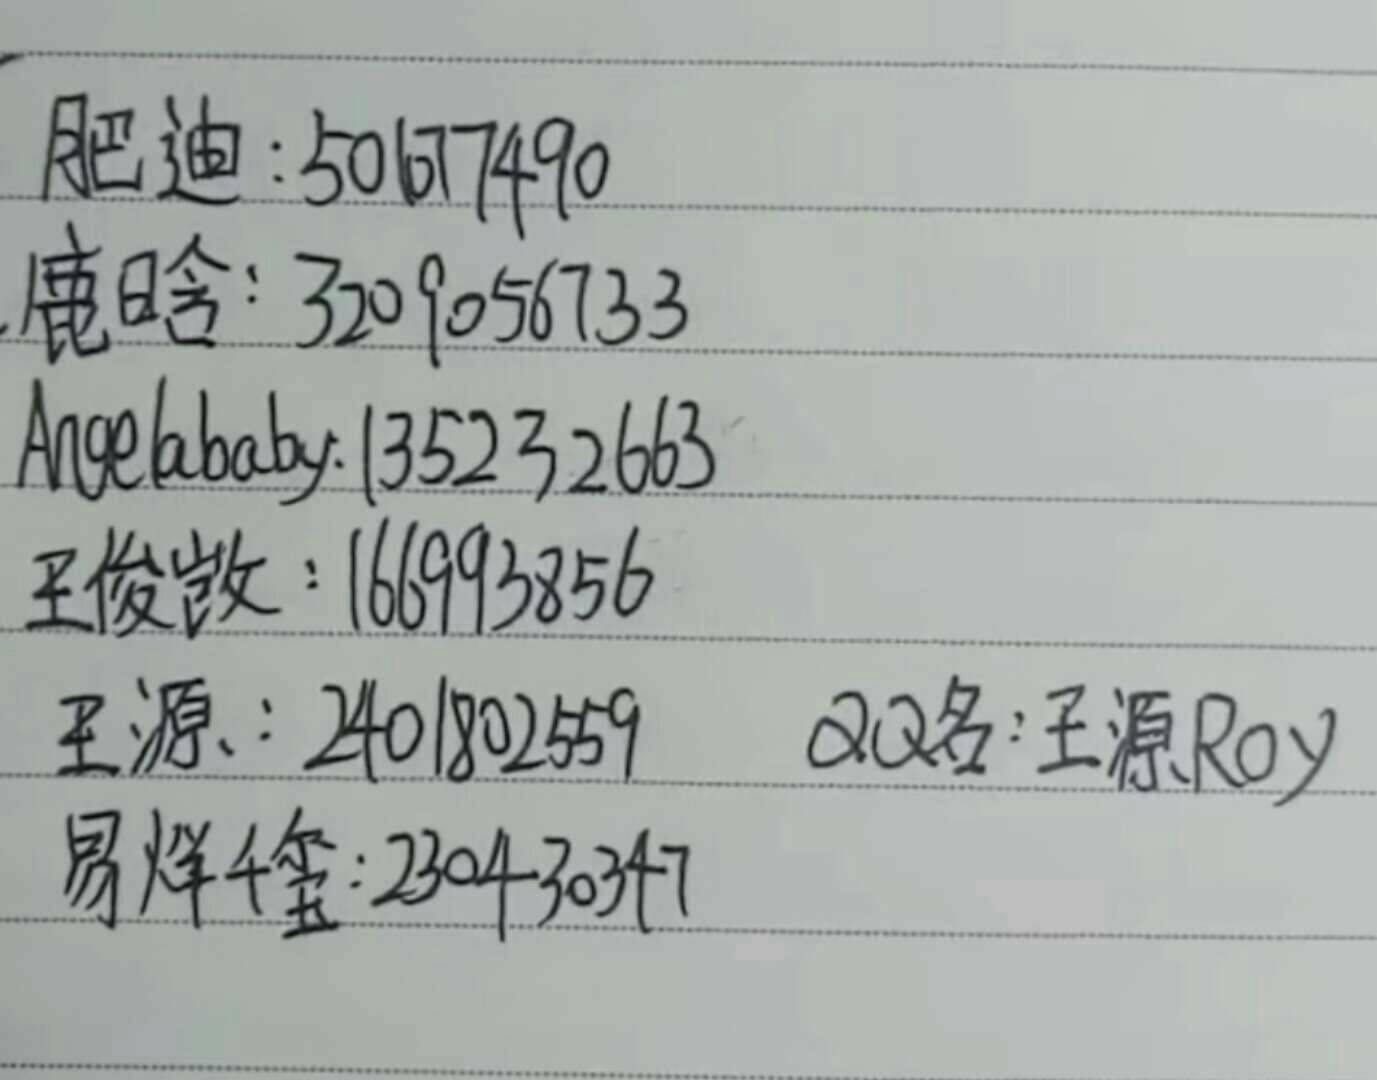 肥迪:50677490
鹿晗:3209056733
Angelababy:135232663
王俊凯:166993856
王源:2401802559 QQ名:王源Roy
易烊千玺:230430347